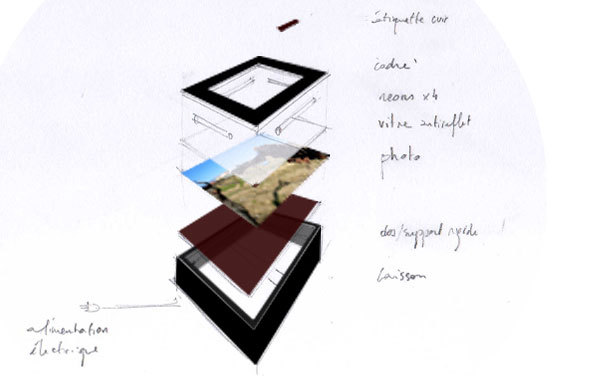 étiquette cuir
cadre
neons x4
vitre antireflet
photo
dos/support rigide
caisson
alimentation
électrique